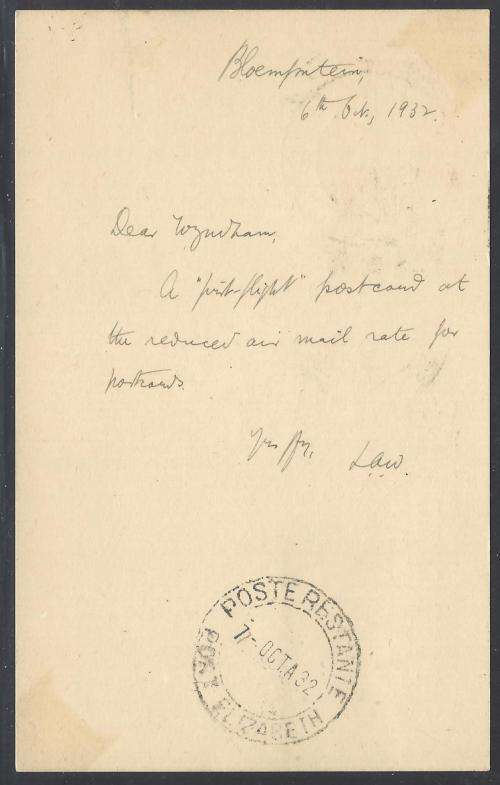 Bloemfontein,
6th Oct, 1932.
Dear Wyndham,
A "first-flight" postcard at
the reduced air mail rate for
postcards.
L.A.W.
POSTE RESTANTE
7-OCTA32
PORT ELIZABETH